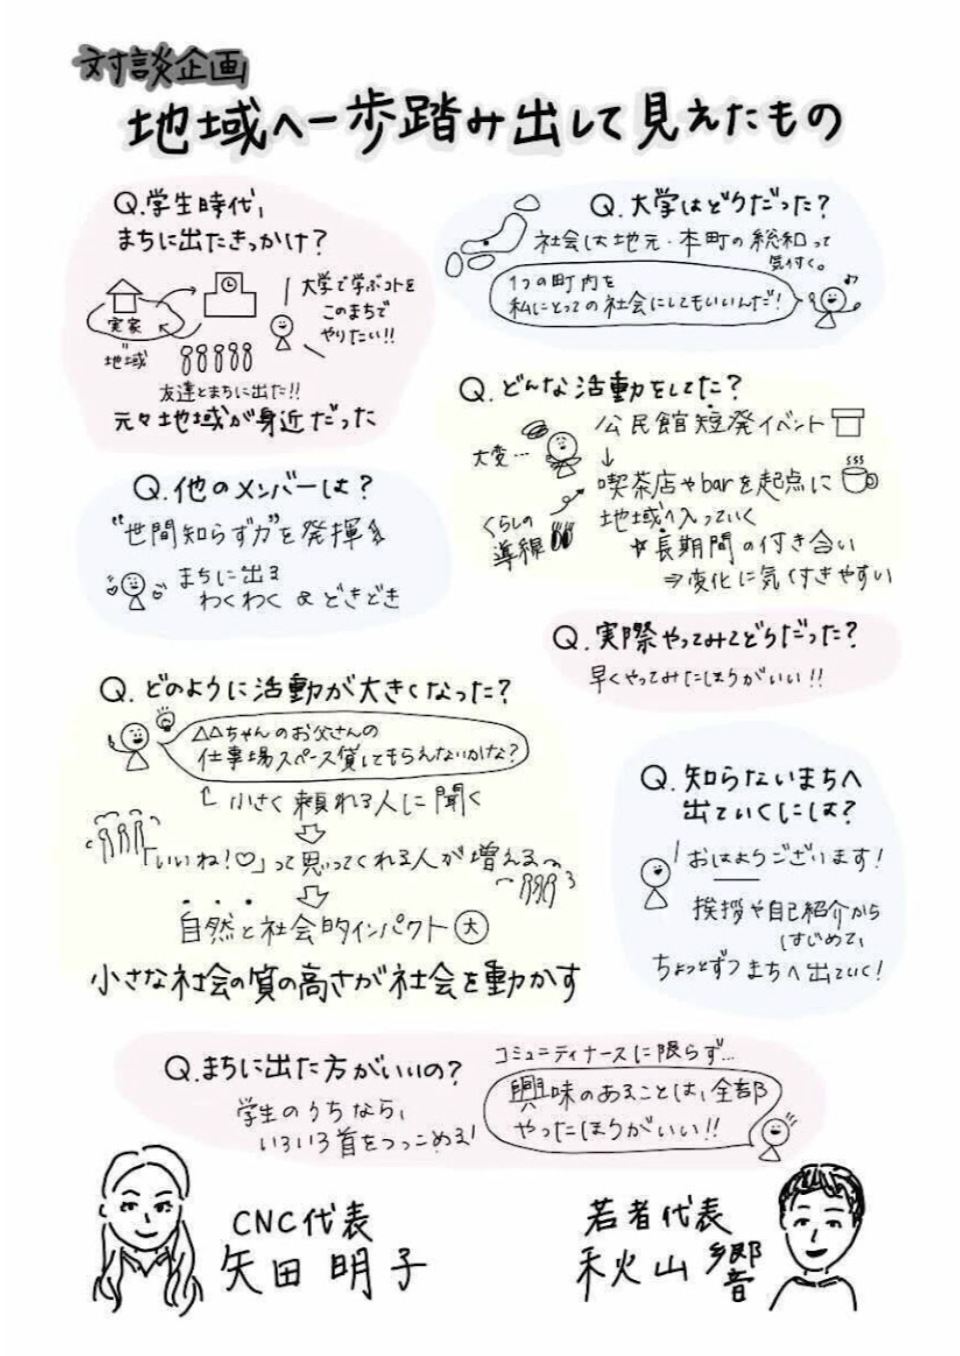 対談企画
地域へ一歩踏み出して見えたもの
Q.学生時代、
まちに出たきっかけ？
実家
地域
大学で学ぶコトを
このまちで
やりたい!!
友達とまちに出た!!
元々地域が身近だった
Q.大学はどうだった？
社会は地元・本町の総和って
気付く。
1つの町内を
私にとっての社会にしてもいいんだ!
Q.どんな活動をしてた？
公民館短発イベント
大変…
↓
喫茶店やbarを起点に
地域へ入っていく
くらしの
導線
☆長期間の付き合い
⇒変化に気くずきやすい
Q.他のメンバーは？
"世間知らず力"を発揮
まちに出る
わくわく & どきどき
Q.実際やってみてどうだった？
早くやってみたほうがいい!!
Q.どのように活動が大きくなった？
△△ちゃんのお父さんの
仕事場スペース貸してもらえないかな？
小さく頼れる人に聞く
「いいね!♡」って思ってくれる人が増える
自然と社会的インパクト大
小さな社会の質の高さが社会を動かす
Q.知らないまちへ
出ていくには？
おはようございます!
挨拶や自己紹介から
はじめて、
ちょっとずつまちへ出ていく!
Q.まちに出た方がいいの？
学生のうちなら、
いろいろ首をつっこめる!
コミュニティナースに限らず…
興味のあることは、全部
やったほうがいい!!
CNC代表
矢田明子
若者代表
秋山響